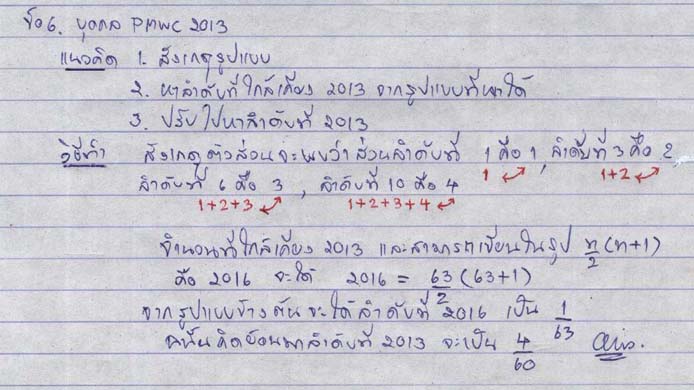 ข้อ6. บุคคล PMWC 2013
แนวคิด 1. สังเกตรูปแบบ
2. หาลำดับที่ใกล้เคียง 2013 จากรูปแบบที่หาได้
3. ปรับไปหาลำดับที่ 2013
วิธีทำ สังเกตตัวส่วนจะพบว่า ส่วนลำดับที่ 1 คือ 1, ลำดับที่ 3 คือ 2,
1 1+2
ลำดับที่ 6 คือ 3 , ลำดับที่ 10 คือ 4
1+2+3 1+2+3+4
จำนวนที่ใกล้เคียง 2013 และสามารถเขียนในรูป n/2 (n+1)
คือ 2016 จะได้ 2016 = 63/2 (63+1)
จากรูปแบบข้างต้น จะได้ลำดับที่ 2016 เป็น 1/63
ฉะนั้นคิดย้อนมาลำดับที่ 2013 จะเป็น 4/60 Ans.